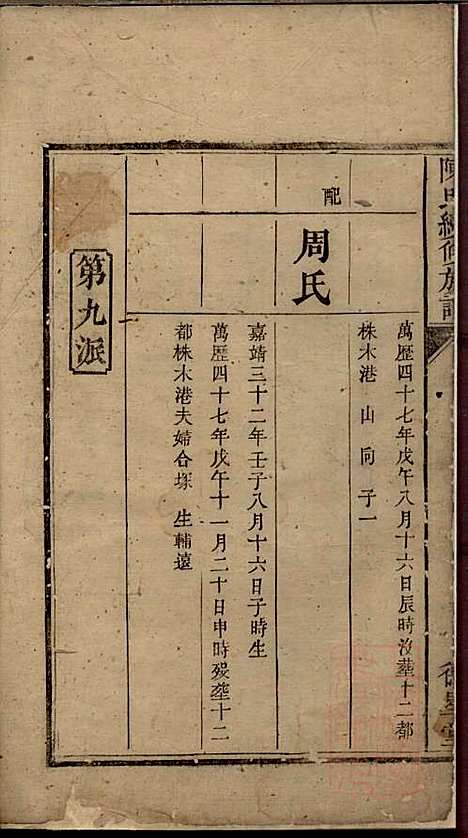 陳氏續修族譜
萬歷四十七年戊午八月十六日辰時沒塟十二都
株木港 山 向 子一
配
周氏
嘉靖三十二年壬子八月十六日子時生
萬歷四十七年戊午十一月二十日申時歿塟十二
都株木港夫婦合塚 生輔遠
第九派